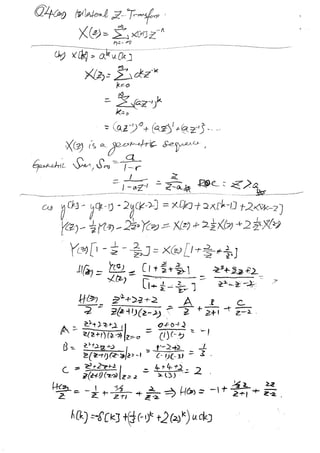 Q4(a) Bilateral Z-Transform
X(z) = ∑ x[n] z^-n
n=-∞
(b) x[k] = a^k u[k]
X(z) = ∑ a^k z^-k
k=0
= ∑ (az^-1)^k
k=0
= (az^-1)^0 + (az^-1)^1 + (az^-1)^2 ...
X(z) is a geometric sequence.
Geometric Sum, S∞ = a/(1-r)
= 1/(1-az^-1) = z/(z-a) ROC: z > a
(c) y[k] - y[k-1] - 2y[k-2] = x[k] + 2x[k-1] + 2x[k-2]
Y(z) - 1/z Y(z) - 2 1/z² Y(z) = X(z) + 2 1/z X(z) + 2 1/z² X(z)
Y(z)[1 - 1/z - 2/z²] = X(z)[1 + 2/z + 2/z²]
H(z) = Y(z)/X(z) = [1 + 2/z + 2/z²]/[1 - 1/z - 2/z²] = (z²+2z+2)/(z²-z-2)
H(z)/z = (z²+2z+2)/(z(z+1)(z-2)) = A/z + B/(z+1) + C/(z-2)
A = (z²+2z+2)/((z+1)(z-2)) | z=0 = (0+0+2)/((1)(-2)) = -1
B = (z²+2z+2)/(z(z+1)(z-2)) | z=-1 = (1-2+2)/((-1)(-3)) = 1/3
C = (z²+2z+2)/(z(z+1)(z-2)) | z=2 = (4+4+2)/(2(3)) = 2
H(z)/z = -1/z + (1/3)/(z+1) + 2/(z-2) ⇒ H(z) = -1 + (1/3 z)/(z+1) + 2z/(z-2)
h[k] = -δ[k] + (1/3(-1)^k + 2(2)^k) u[k]